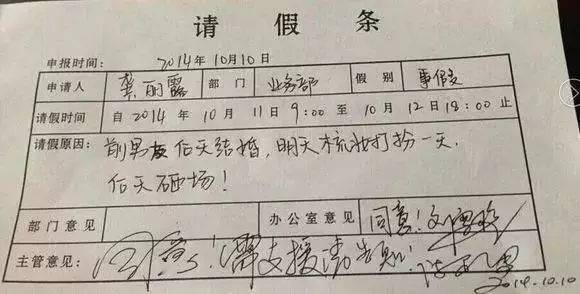 请 假 条
申报时间: 2014年10月10日
申请人 龚丽露 部门 业务部 假别 事假
请假时间 自2014年10月11日9:00至10月12日18:00止
请假原因: 前男友后天结婚,明天梳妆打扮一天.
后天砸场!
部门意见 办公室意见 同意!
主管意见: 同意!需支援请告知!
2014.10.10